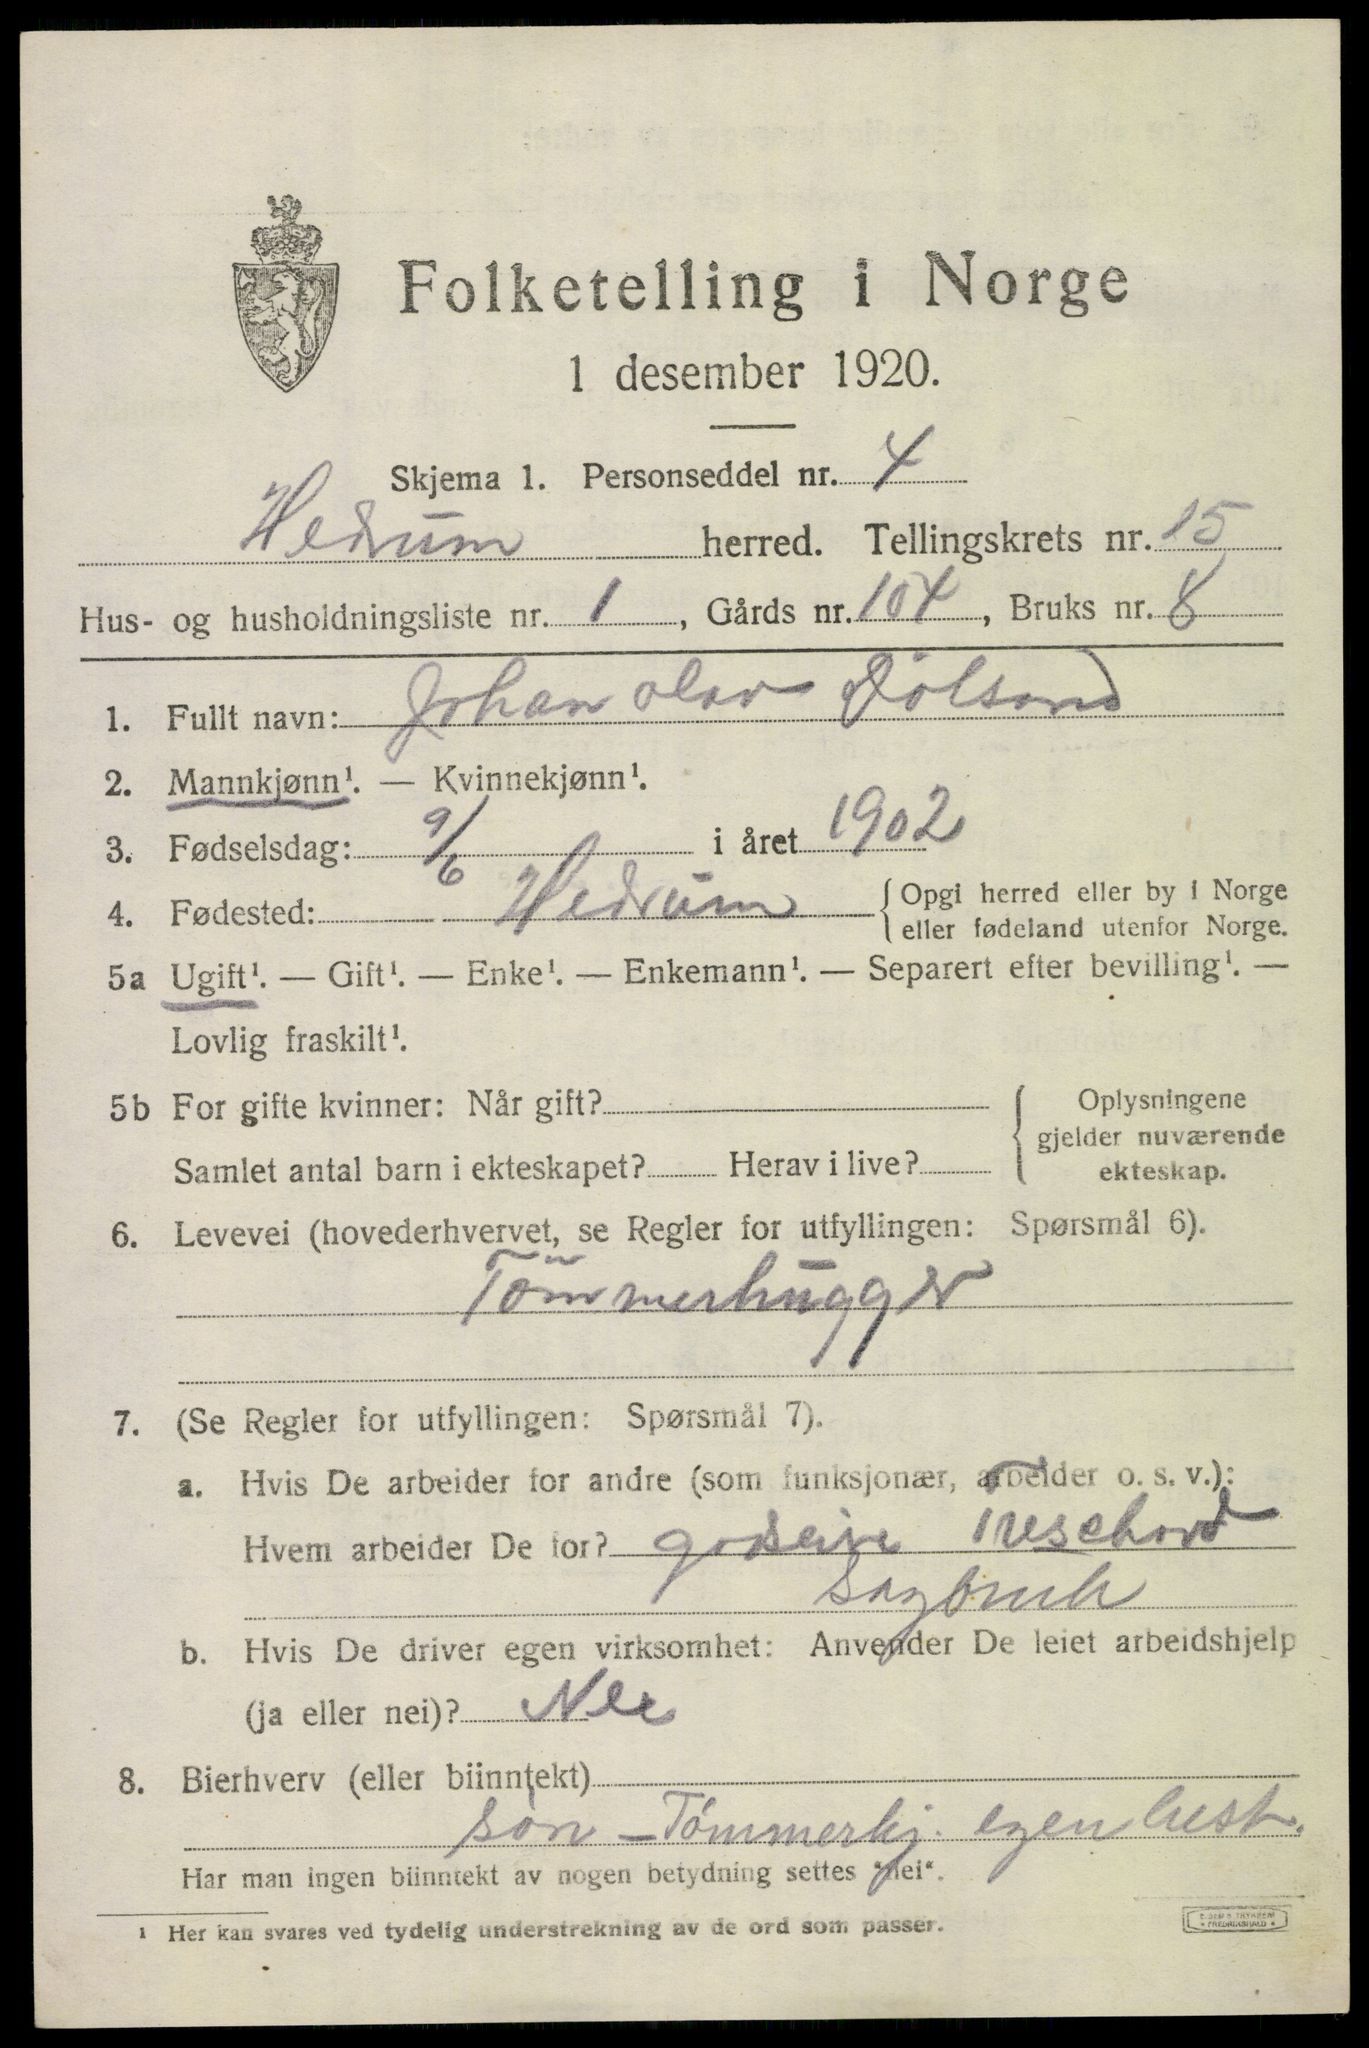 Folketelling i Norge
1 desember 1920.
Skjema 1. Personseddel nr. 4
Hedrum herred. Tellingskrets nr. 15
Hus- og husholdningsliste nr. 1, Gårds nr. 104, Bruks nr. 8
1. Fullt navn: Johan Olav
2. Mannkjønn¹. — Kvinnekjønn¹.
3. Fødselsdag: 9/6 i året 1902
4. Fødested: Hedrum { Opgi herred eller by i Norge
eller fødeland utenfor Norge.
5a Ugift¹. — Gift¹. — Enke¹. — Enkemann¹. — Separert efter bevilling¹. —
Lovlig fraskilt¹.
5b For gifte kvinner: Når gift? { Oplysningene
gjelder nuværende
Samlet antal barn i ekteskapet? Herav i live?
ekteskap.
6. Levevei (hovederhvervet, se Regler for utfyllingen: Spørsmål 6).
Tömmerhugger
7. (Se Regler for utfyllingen: Spørsmål 7).
a. Hvis De arbeider for andre (som funksjonær, arbeider o. s. v.):
Hvem arbeider De for? godseier
Sagbruk
b. Hvis De driver egen virksomhet: Anvender De leiet arbeidshjelp
(ja eller nei)? Nei
8. Bierhverv (eller biinntekt)
søn — Tømmerkj. egen hest.
Har man ingen biinntekt av nogen betydning settes "nei".
¹ Her kan svares ved tydelig understrekning av de ord som passer.